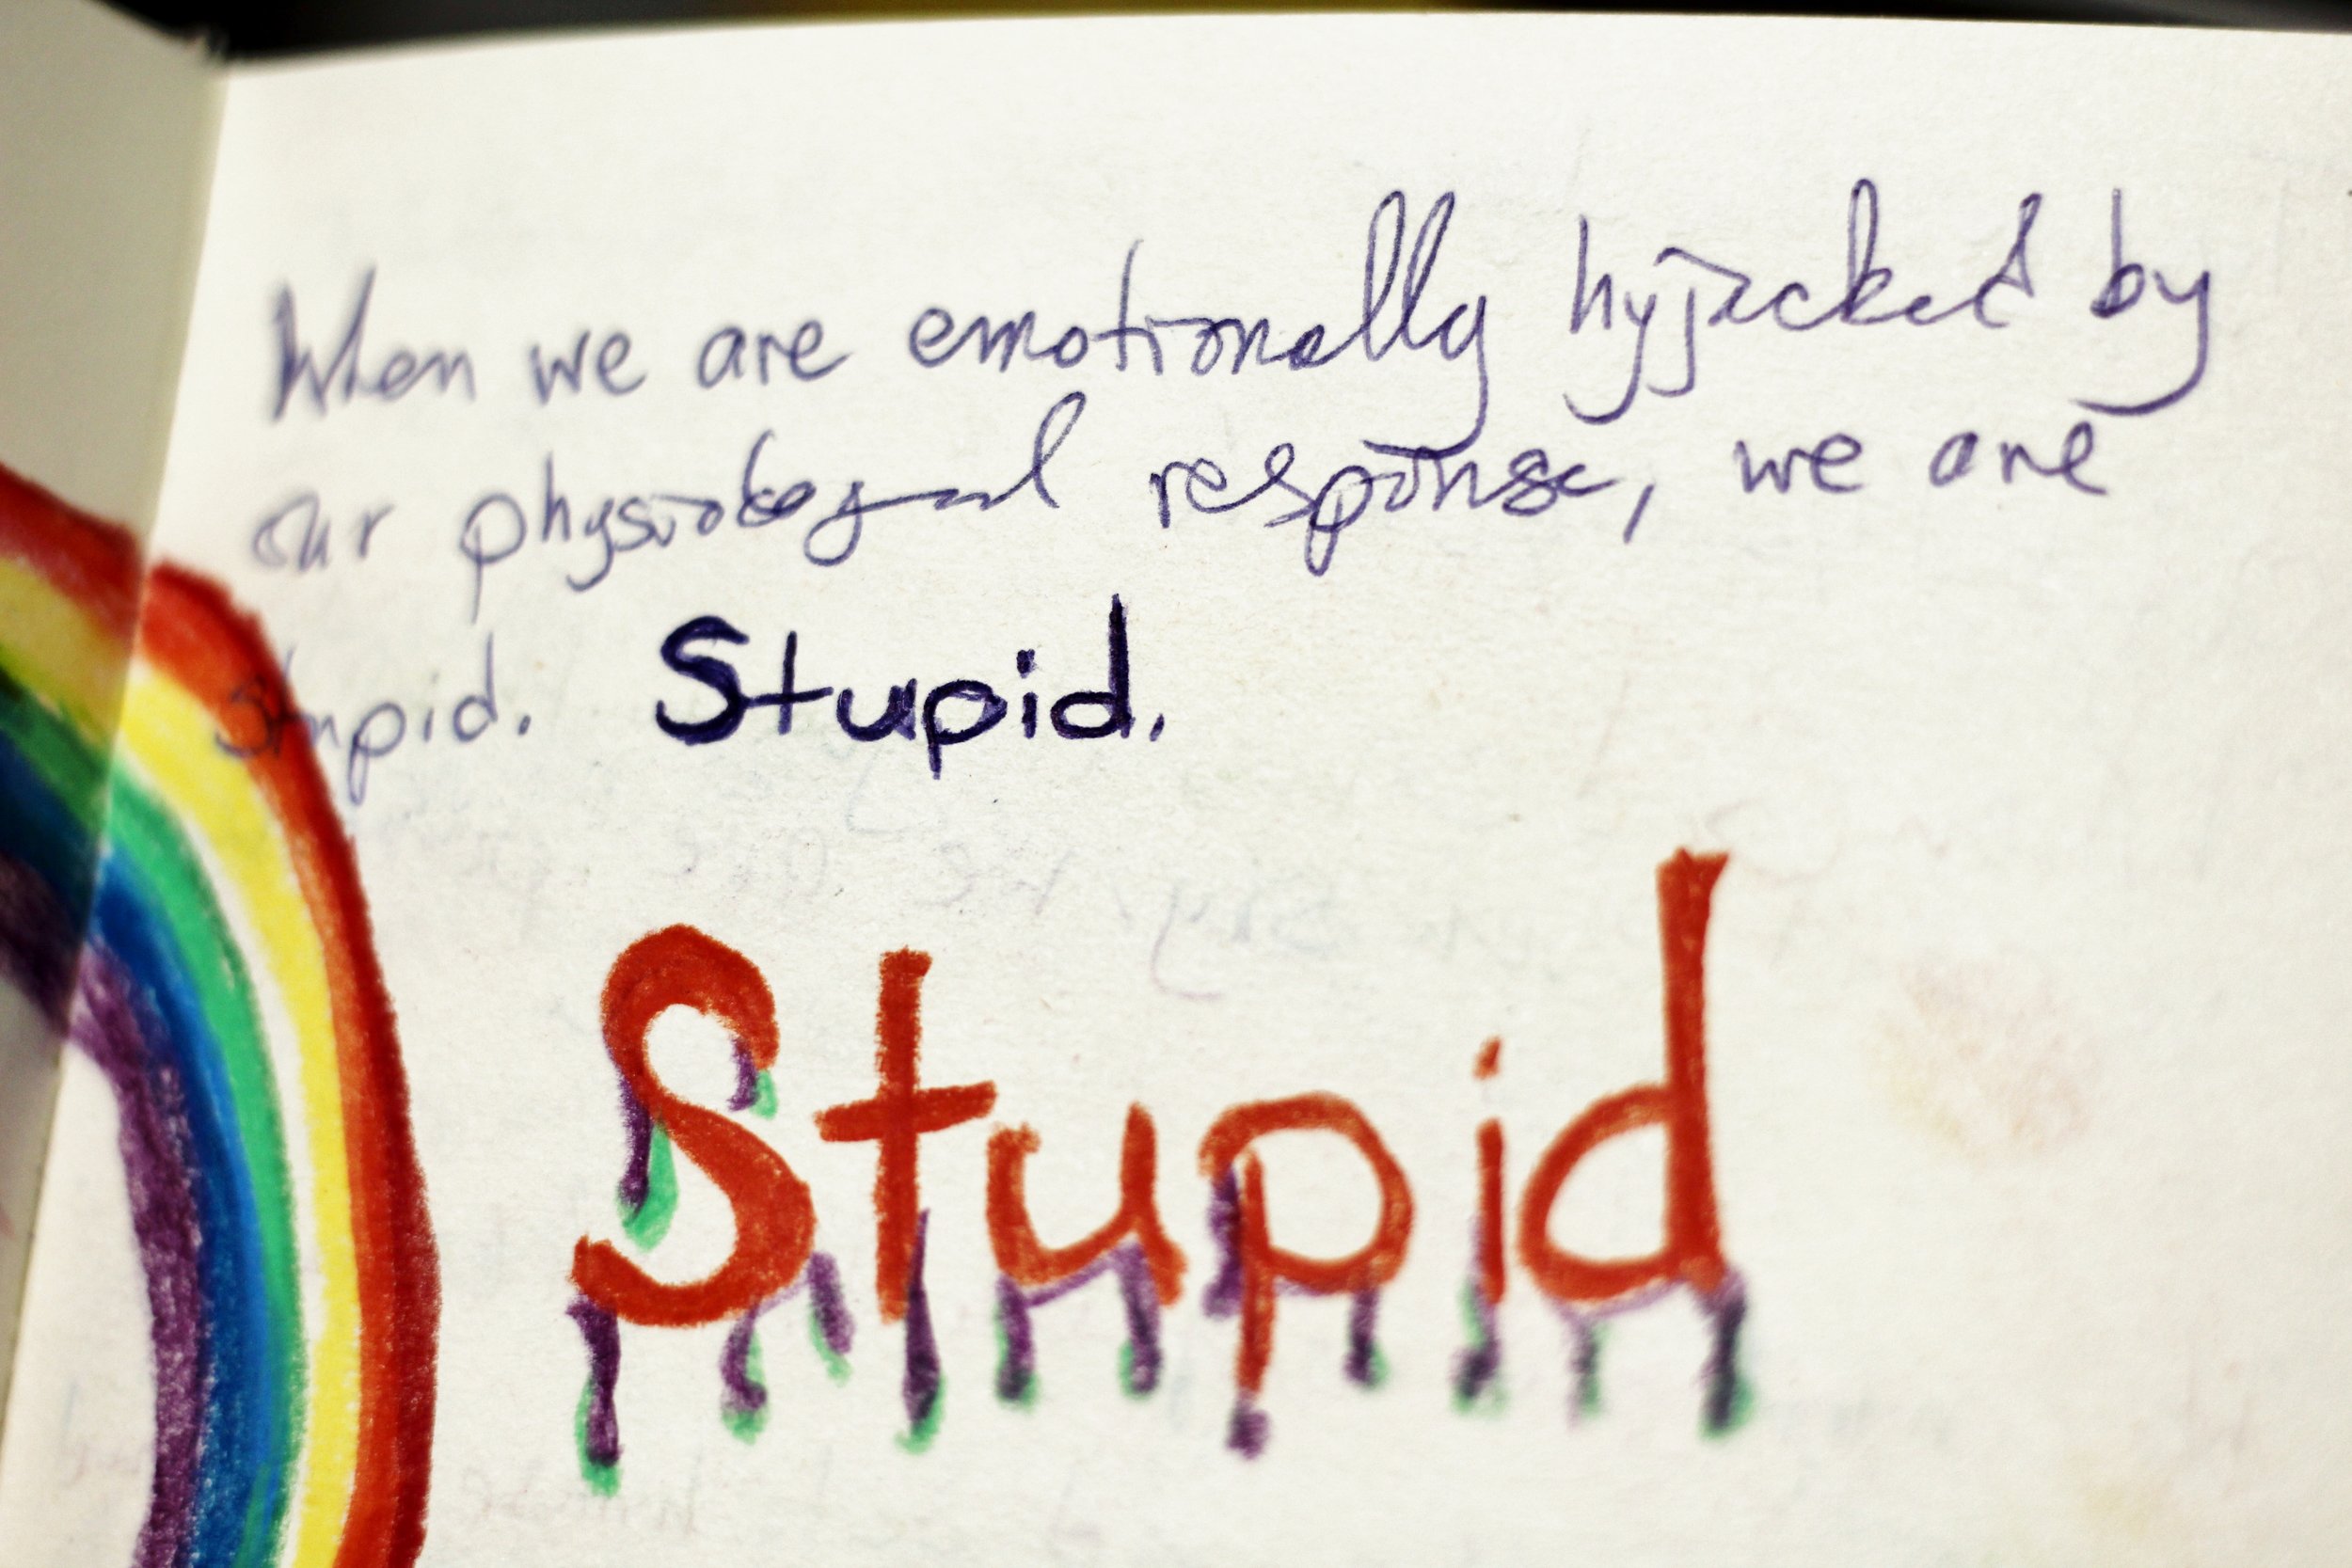 When we are emotionally hyjacked by
our physiological response, we are
Stupid. Stupid.
Stupid